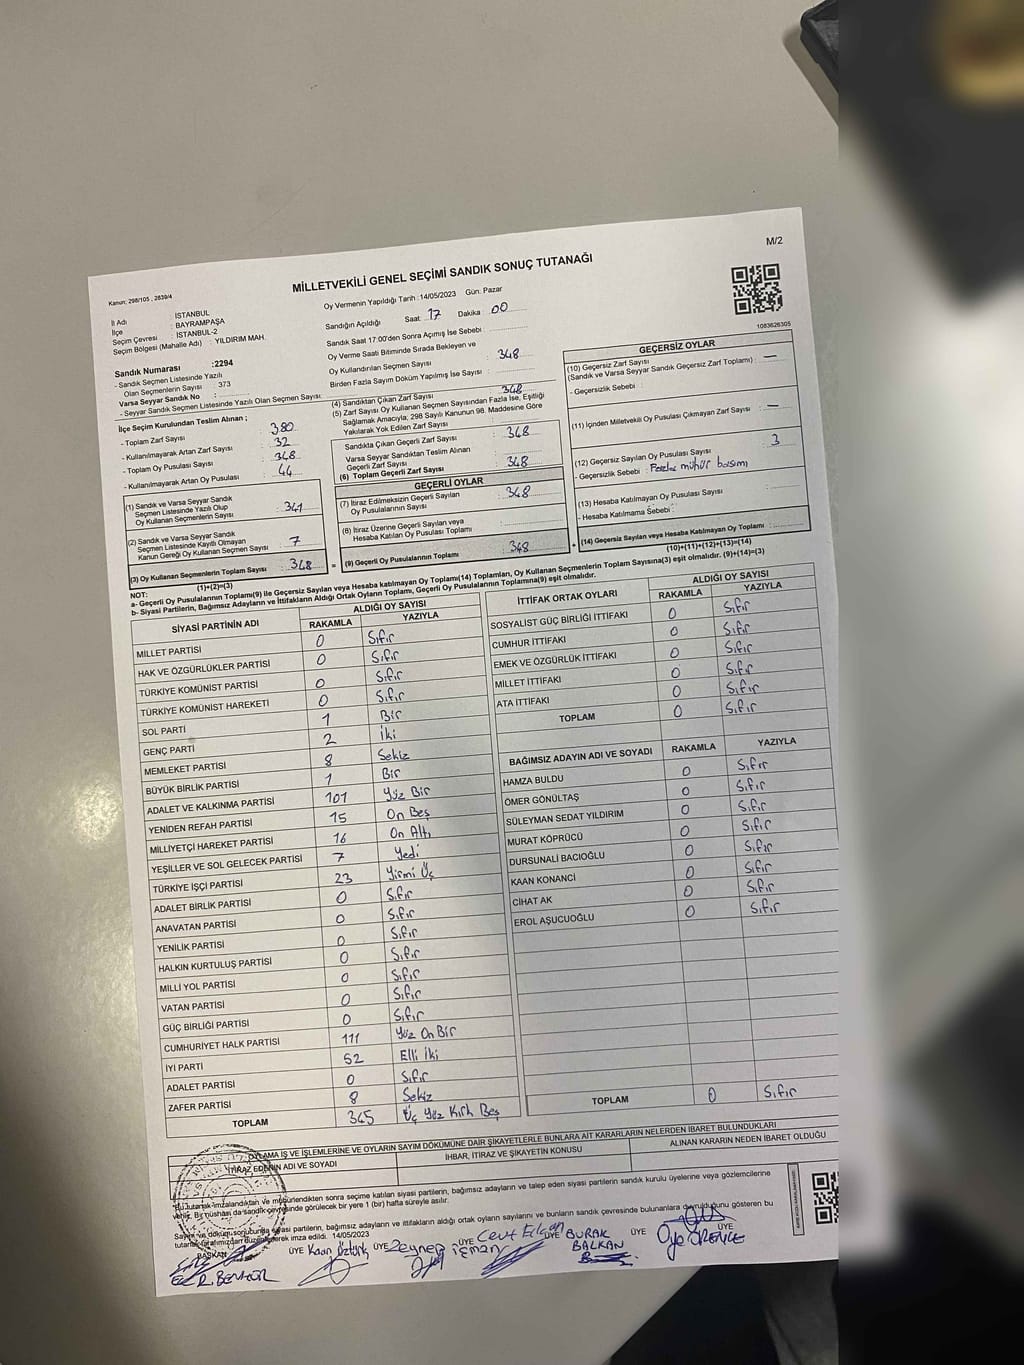 M/2
MİLLETVEKİLİ GENEL SEÇİMİ SANDIK SONUÇ TUTANAĞI
Kanun: 298/105 , 2839/4
İl Adı : İSTANBUL
İlçe : BAYRAMPAŞA
Seçim Çevresi : İSTANBUL-2
Seçim Bölgesi (Mahalle Adı) : YILDIRIM MAH.
Sandık Numarası :2294
- Sandık Seçmen Listesinde Yazılı
Olan Seçmenlerin Sayısı : 373
Varsa Seyyar Sandık No :
- Seyyar Sandık Seçmen Listesinde Yazılı Olan Seçmen Sayısı:
İlçe Seçim Kurulundan Teslim Alınan ;
- Toplam Zarf Sayısı : 380
- Kullanılmayarak Artan Zarf Sayısı : 32
- Toplam Oy Pusulası Sayısı : 348
- Kullanılmayarak Artan Oy Pusulası Sayısı : 44
(1) Sandık ve Varsa Seyyar Sandık
Seçmen Listesinde Yazılı Olup
Oy Kullanan Seçmenlerin Sayısı : 341
(2) Sandık ve Varsa Seyyar Sandık
Seçmen Listesinde Kayıtlı Olmayan
Kanun Gereği Oy Kullanan Seçmen Sayısı : 7
(3) Oy Kullanan Seçmenlerin Toplam Sayısı : 348
(1)+(2)=(3)
Oy Vermenin Yapıldığı Tarih :14/05/2023 Gün: Pazar
Sandığın Açıldığı Saat : 17 Dakika : 00
Sandık Saat 17:00'den Sonra Açılmış İse Sebebi :
Oy Verme Saati Bitiminde Sırada Bekleyen ve
Oy Kullandırılan Seçmen Sayısı : 348
Birden Fazla Sayım Döküm Yapılmış İse Sayısı :
(4) Sandıktan Çıkan Zarf Sayısı : 348
(5) Zarf Sayısı Oy Kullanan Seçmen Sayısından Fazla İse, Eşitliği
Sağlamak Amacıyla, 298 Sayılı Kanunun 98. Maddesine Göre
Yakılarak Yok Edilen Zarf Sayısı :
Sandıkta Çıkan Geçerli Zarf Sayısı : 348
Varsa Seyyar Sandıktan Teslim Alınan
Geçerli Zarf Sayısı :
(6) Toplam Geçerli Zarf Sayısı : 348
GEÇERLİ OYLAR
(7) İtiraz Edilmeksizin Geçerli Sayılan
Oy Pusulalarının Sayısı : 348
(8) İtiraz Üzerine Geçerli Sayılan veya
Hesaba Katılan Oy Pusulası Toplamı :
= (9) Geçerli Oy Pusulalarının Toplamı : 348
1083626305
GEÇERSİZ OYLAR
(10) Geçersiz Zarf Sayısı
(Sandık ve Varsa Seyyar Sandık Geçersiz Zarf Toplamı) : —
- Geçersizlik Sebebi :
(11) İçinden Milletvekili Oy Pusulası Çıkmayan Zarf Sayısı : —
(12) Geçersiz Sayılan Oy Pusulası Sayısı : 3
- Geçersizlik Sebebi : Fazla mühür basımı
(13) Hesaba Katılmayan Oy Pusulası Sayısı :
- Hesaba Katılmama Sebebi :
+ (14) Geçersiz Sayılan veya Hesaba Katılmayan Oy Toplamı :
(10)+(11)+(12)+(13)=(14)
NOT:
a- Geçerli Oy Pusulalarının Toplamı(9) ile Geçersiz Sayılan veya Hesaba katılmayan Oy Toplamı(14) Toplamları, Oy Kullanan Seçmenlerin Toplam Sayısına(3) eşit olmalıdır. (9)+(14)=(3)
b- Siyasi Partilerin, Bağımsız Adayların ve İttifakların Aldığı Ortak Oyların Toplamı, Geçerli Oy Pusulalarının Toplamına(9) eşit olmalıdır.
SİYASİ PARTİNİN ADI ALDIĞI OY SAYISI
RAKAMLA YAZIYLA
MİLLET PARTİSİ 0 Sıfır
HAK VE ÖZGÜRLÜKLER PARTİSİ 0 Sıfır
TÜRKİYE KOMÜNİST PARTİSİ 0 Sıfır
TÜRKİYE KOMÜNİST HAREKETİ 0 Sıfır
SOL PARTİ 1 Bir
GENÇ PARTİ 2 İki
MEMLEKET PARTİSİ 8 Sekiz
BÜYÜK BİRLİK PARTİSİ 1 Bir
ADALET VE KALKINMA PARTİSİ 101 Yüz Bir
YENİDEN REFAH PARTİSİ 15 On Beş
MİLLİYETÇİ HAREKET PARTİSİ 16 On Altı
YEŞİLLER VE SOL GELECEK PARTİSİ 7 Yedi
TÜRKİYE İŞÇİ PARTİSİ 23 Yirmi Üç
ADALET BİRLİK PARTİSİ 0 Sıfır
ANAVATAN PARTİSİ 0 Sıfır
YENİLİK PARTİSİ 0 Sıfır
HALKIN KURTULUŞ PARTİSİ 0 Sıfır
MİLLİ YOL PARTİSİ 0 Sıfır
VATAN PARTİSİ 0 Sıfır
GÜÇ BİRLİĞİ PARTİSİ 0 Sıfır
CUMHURİYET HALK PARTİSİ 111 Yüz On Bir
İYİ PARTİ 52 Elli İki
ADALET PARTİSİ 0 Sıfır
ZAFER PARTİSİ 8 Sekiz
TOPLAM 345 Üç Yüz Kırk Beş
İTTİFAK ORTAK OYLARI ALDIĞI OY SAYISI
RAKAMLA YAZIYLA
SOSYALİST GÜÇ BİRLİĞİ İTTİFAKI 0 Sıfır
CUMHUR İTTİFAKI 0 Sıfır
EMEK VE ÖZGÜRLÜK İTTİFAKI 0 Sıfır
MİLLET İTTİFAKI 0 Sıfır
ATA İTTİFAKI 0 Sıfır
TOPLAM 0 Sıfır
BAĞIMSIZ ADAYIN ADI VE SOYADI RAKAMLA YAZIYLA
HAMZA BULDU 0 Sıfır
ÖMER GÖNÜLTAŞ 0 Sıfır
SÜLEYMAN SEDAT YILDIRIM 0 Sıfır
MURAT KÖPRÜCÜ 0 Sıfır
DURSUNALİ BACIOĞLU 0 Sıfır
KAAN KONANCİ 0 Sıfır
CİHAT AK 0 Sıfır
EROL AŞUCUOĞLU 0 Sıfır
TOPLAM 0 Sıfır
OYLAMA İŞ VE İŞLEMLERİNE VE OYLARIN SAYIM DÖKÜMÜNE DAİR ŞİKAYETLERLE BUNLARA AİT KARARLARIN NELERDEN İBARET BULUNDUKLARI
İTİRAZ EDENİN ADI VE SOYADI İHBAR, İTİRAZ VE ŞİKAYETİN KONUSU ALINAN KARARIN NEDEN İBARET OLDUĞU
*Bu tutanak imzalandıktan ve mühürlendikten sonra seçime katılan siyasi partilerin, bağımsız adayların ve talep eden siyasi partilerin sandık kurulu üyelerine veya gözlemcilerine
verilir. Bir nüshası da sandık çevresinde görülecek bir yere 1 (bir) hafta süreyle asılır.
Sayım ve döküm sonucunda siyasi partilerin, bağımsız adayların ve ittifakların aldığı ortak oyların sayılarını ve bunların sandık çevresinde bulunanlara duyrulduğunu gösteren bu
tutanak tarafımızdan düzenlenerek imza edildi. 14/05/2023
BAŞKAN ÜYE Kaan Öztürk ÜYE Zeynep ÜYE ÜYE BURAK BALKAN ÜYE ÜYE